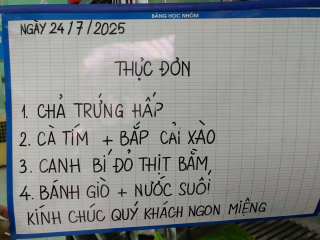 BẢNG HỌC NHÓM
NGÀY 24/7/2025
THỰC ĐƠN
1. CHẢ TRỨNG HẤP
2. CÀ TÍM + BẮP CẢI XÀO
3. CANH BÍ ĐỎ THỊT BẰM
4. BÁNH GIÒ + NƯỚC SUỐI
KÍNH CHÚC QUÝ KHÁCH NGON MIỆNG